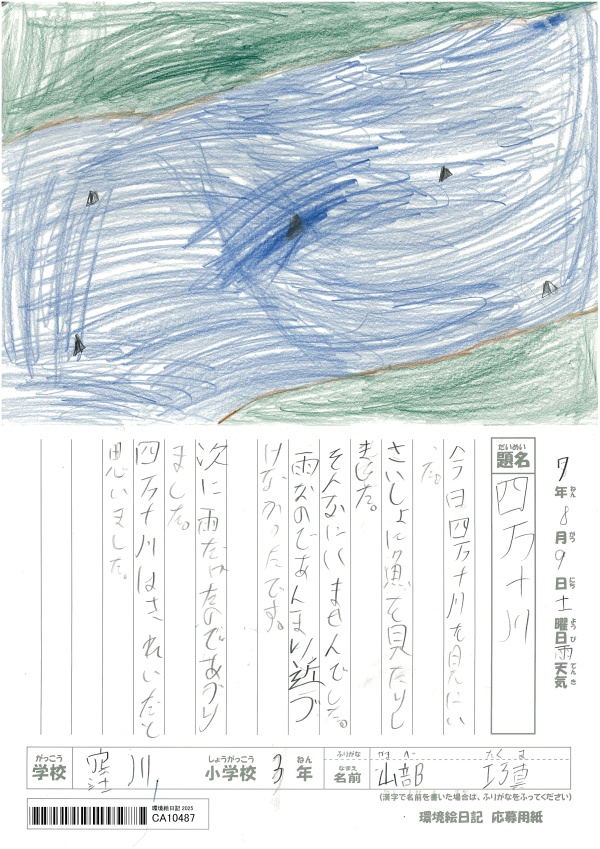 7年8月9日土曜日雨天気
ねん がつ にち ようび てんき
だいめい
題名
四万十川
今日四万十川を見にい
た。
さいしょに魚を見たりし
ました。
そんなにいませんでした。
雨なのであんまり近づ
けなかったです。
次に雨だったのであがり
ました。
四万十川はきれいだと
思いました。
がっこう
学校
窪川
しょうがっこう
小学校
3年
ねん
ふりがな
なまえ
名前
たくま
山部 巧真
(漢字で名前を書いた場合は、ふりがなをふってください)
環境絵日記 2025
CA10487
環境絵日記 応募用紙